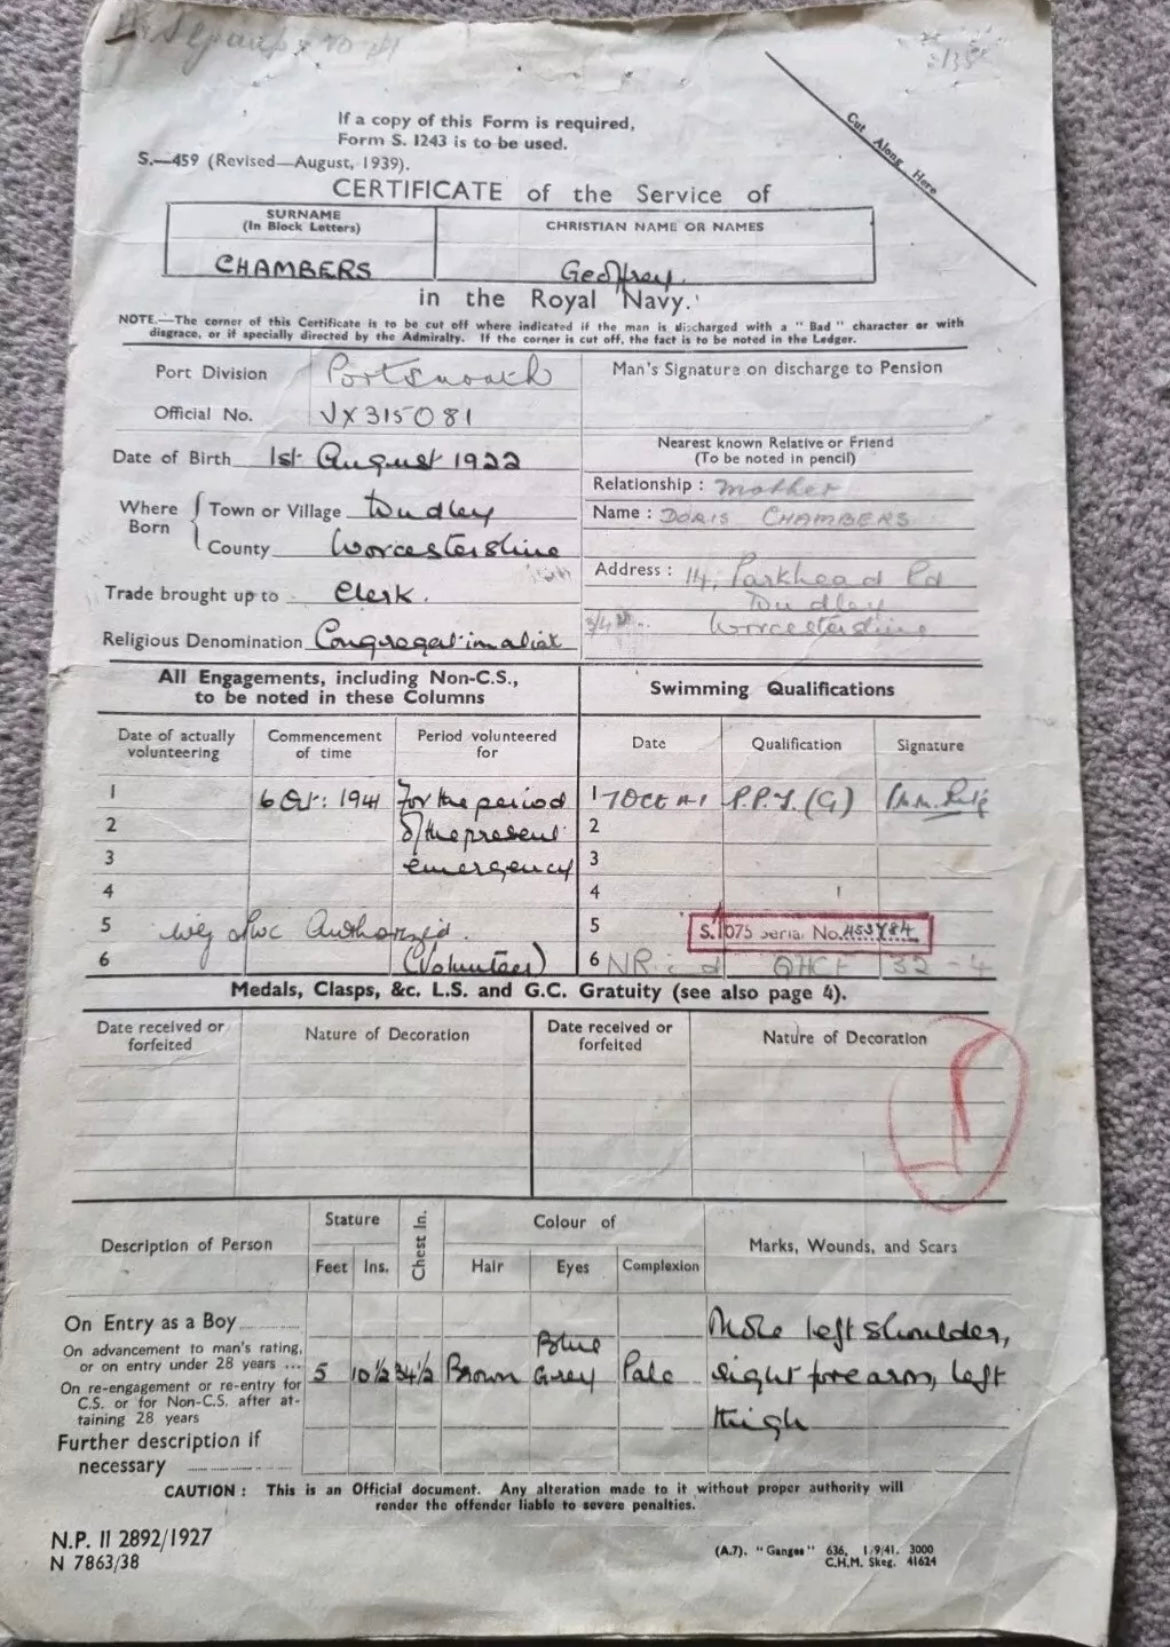 If a copy of this Form is required,
Form S. 1243 is to be used.
S.—459 (Revised—August, 1939).
Cut Along Here
CERTIFICATE of the Service of
SURNAME
(In Block Letters)
CHRISTIAN NAME OR NAMES
CHAMBERS
Geoffrey.
in the Royal Navy.
NOTE.—The corner of this Certificate is to be cut off where indicated if the man is discharged with a "Bad" character or with
disgrace, or if specially directed by the Admiralty. If the corner is cut off, the fact is to be noted in the Ledger.
Port Division Portsmouth
Man's Signature on discharge to Pension
Official No. JX315081
Date of Birth 1st August 1922
Nearest known Relative or Friend
(To be noted in pencil)
Relationship : mother
Where Born
Town or Village Dudley
Name : DORIS CHAMBERS
County Worcestershire
Address : 14, Parkhead Rd
Dudley
Worcestershire
Trade brought up to Clerk.
Religious Denomination Congregationalist
All Engagements, including Non-C.S.,
to be noted in these Columns
Swimming Qualifications
Date of actually volunteering
Commencement of time
Period volunteered for
Date
Qualification
Signature
1 6 Oct: 1941 For the period
1 7 Oct 41 P.P.T. (G)
2 of the present
2
3 emergency
3
4
4
5 Authorized.
5 S. 1075 Serial No.
6 (Volunteer)
6
Medals, Clasps, &c. L.S. and G.C. Gratuity (see also page 4).
Date received or forfeited
Nature of Decoration
Date received or forfeited
Nature of Decoration
Description of Person
Stature
Feet
Ins.
Chest In.
Colour of
Hair
Eyes
Complexion
Marks, Wounds, and Scars
On Entry as a Boy
On advancement to man's rating,
or on entry under 28 years ...
5 10½ 34½ Brown Blue Grey Pale
Mole left shoulder,
right forearm, left
thigh
On re-engagement or re-entry for
C.S. or for Non-C.S. after at-
taining 28 years
Further description if
necessary
CAUTION : This is an Official document. Any alteration made to it without proper authority will
render the offender liable to severe penalties.
N.P. II 2892/1927
N 7863/38
(A.7). "Ganges" 636, 1/9/41. 3000
C.H.M. Skeg. 41624